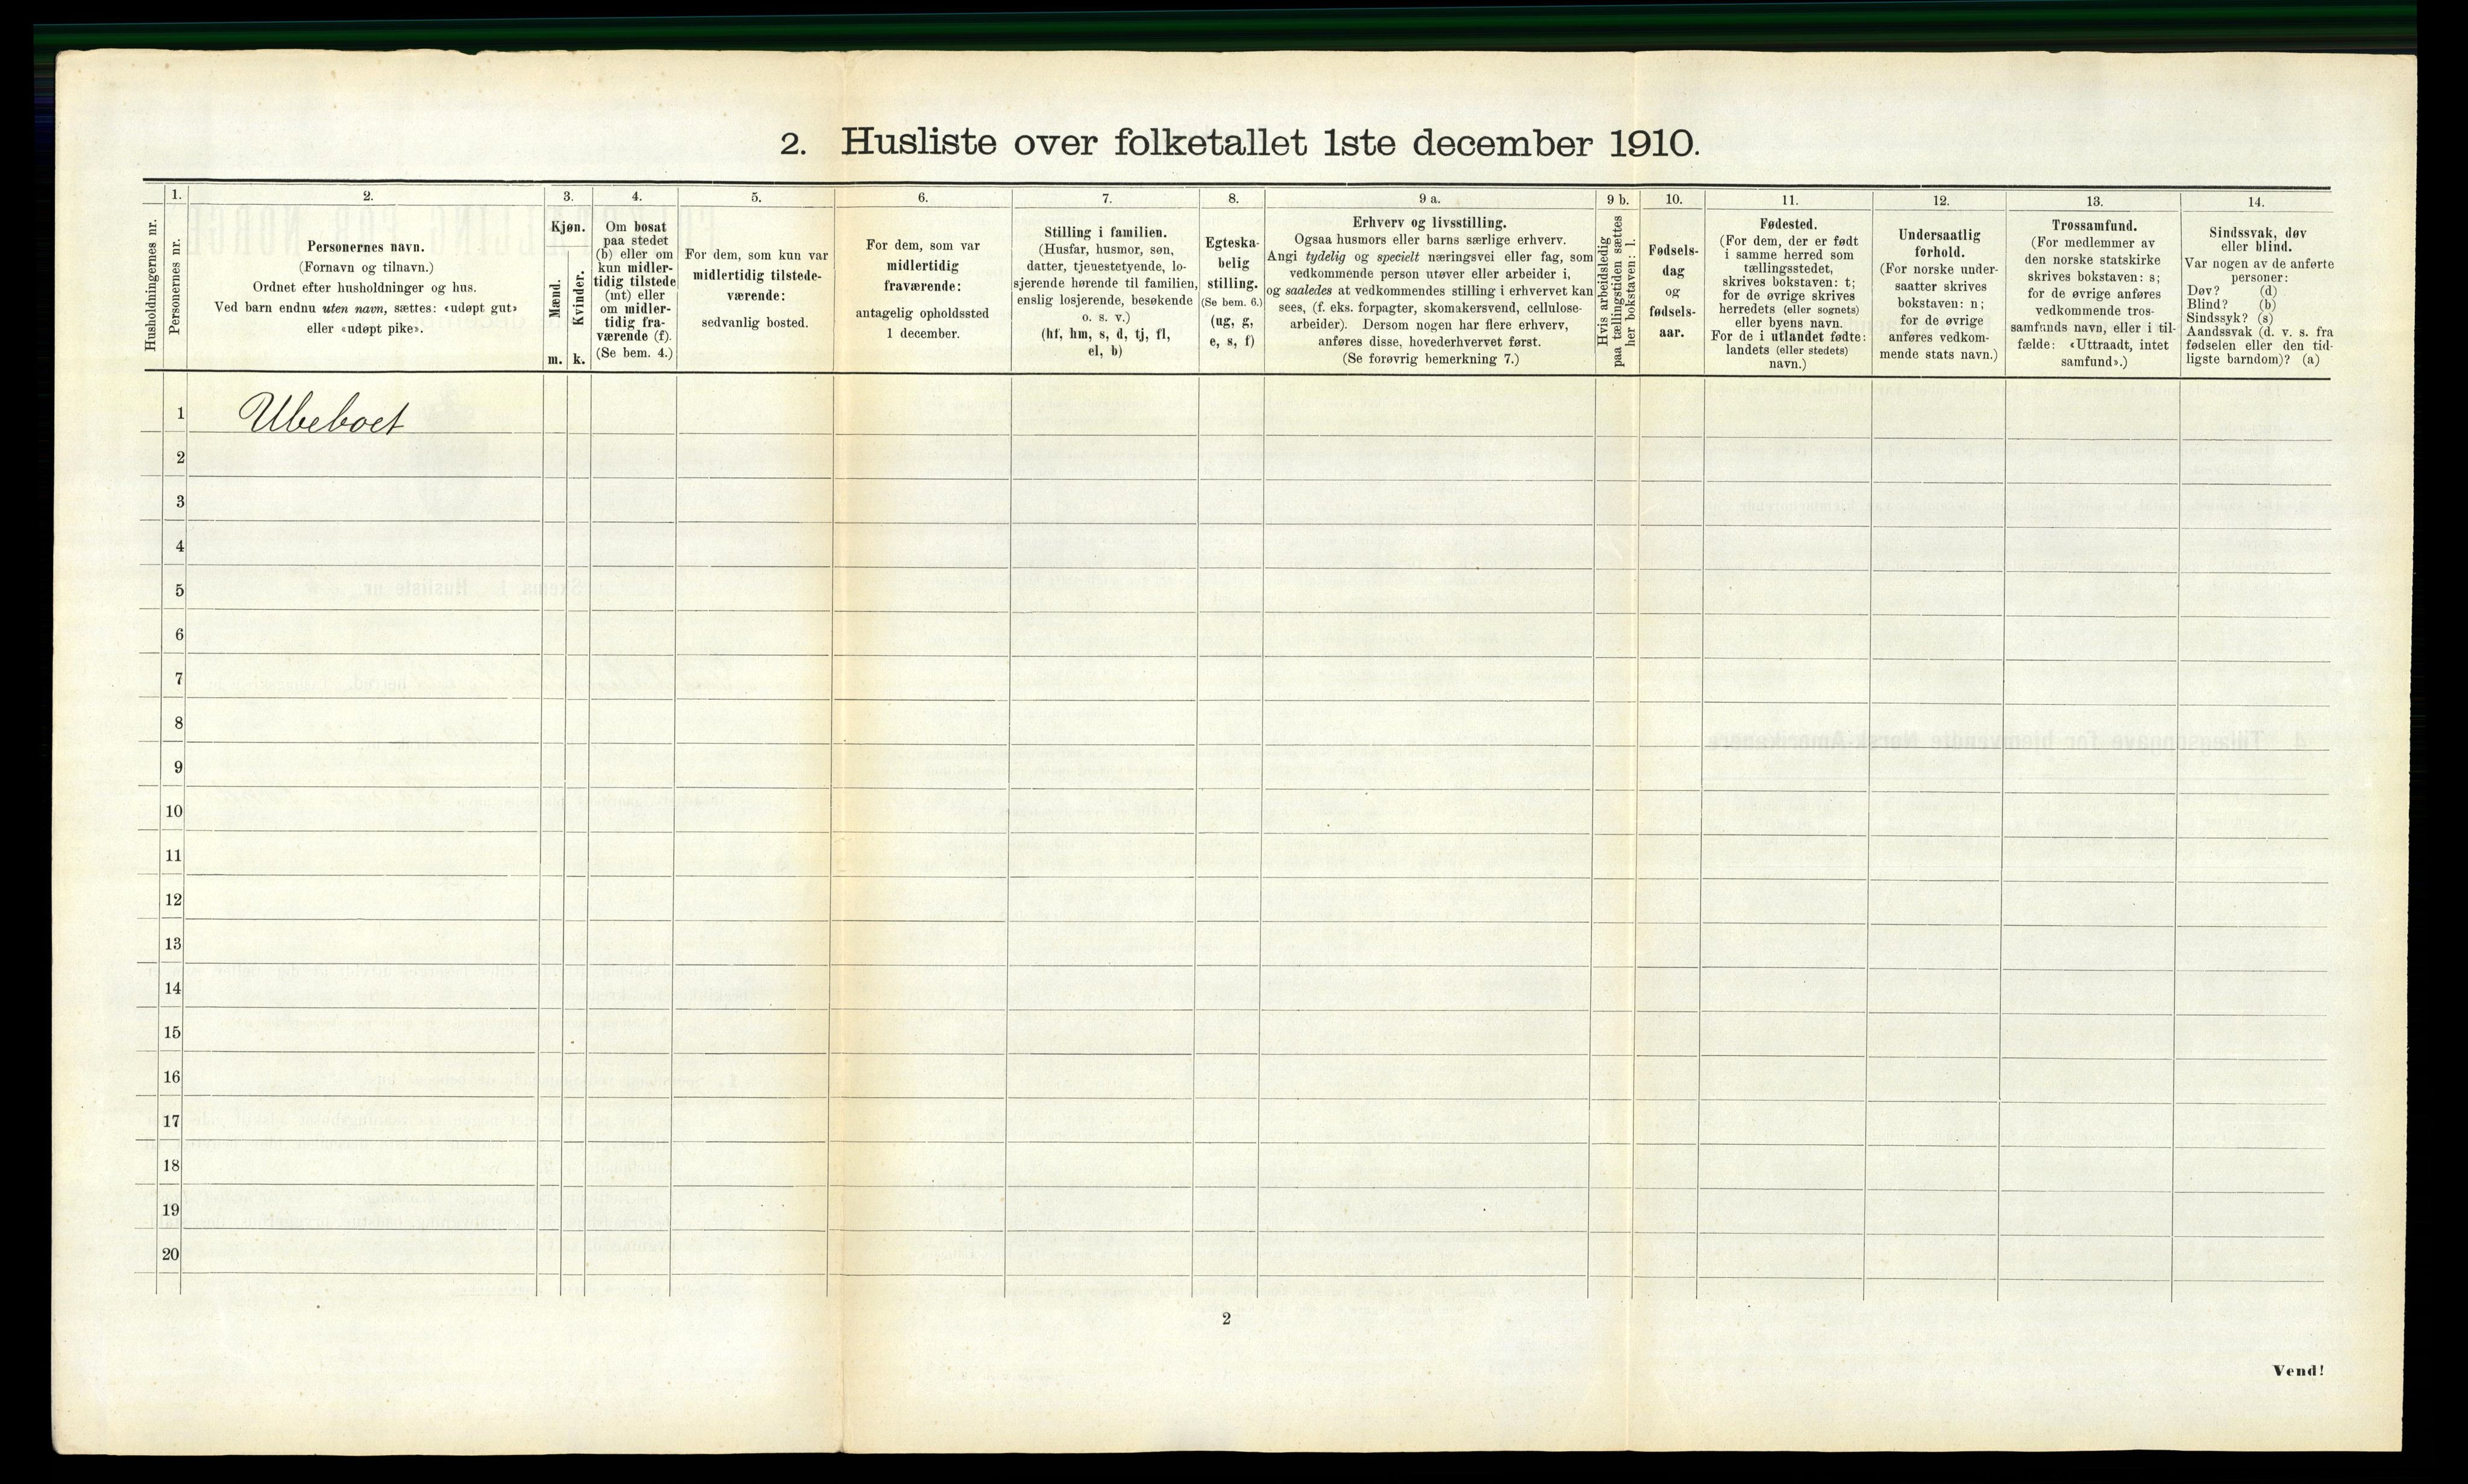 2. Husliste over folketallet 1ste december 1910.
Husholdningernes nr.
1.
Personernes nr.
2.
Personernes navn.
(Fornavn og tilnavn.)
Ordnet efter husholdninger og hus.
Ved barn endnu uten navn, sættes: «udøpt gut»
eller «udøpt pike».
3.
Kjøn.
Mænd.
Kvinder.
m.
k.
4.
Om bosat
paa stedet
(b) eller om
kun midler-
tidig tilstede
(mt) eller
om midler-
tidig fra-
værende (f).
(Se bem. 4.)
5.
For dem, som kun var
midlertidig tilstede-
værende:
sedvanlig bosted.
6.
For dem, som var
midlertidig
fraværende:
antagelig opholdssted
1 december.
7.
Stilling i familien.
(Husfar, husmor, søn,
datter, tjenestetyende, lo-
sjerende hørende til familien,
enslig losjerende, besøkende
o. s. v.)
(hf, hm, s, d, tj, fl,
el, b)
8.
Egteska-
belig
stilling.
(Se bem. 6.)
(ug, g,
e, s, f)
9 a.
Erhverv og livsstilling.
Ogsaa husmors eller barns særlige erhverv.
Angi tydelig og specielt næringsvei eller fag, som
vedkommende person utøver eller arbeider i,
og saaledes at vedkommendes stilling i erhvervet kan
sees, (f. eks. forpagter, skomakersvend, cellulose-
arbeider). Dersom nogen har flere erhverv,
anføres disse, hovederhvervet først.
(Se forøvrig bemerkning 7.)
9 b.
Hvis arbeidsledig
paa tællingstiden sættes
her bokstaven: l.
10.
Fødsels-
dag
og
fødsels-
aar.
11.
Fødested.
(For dem, der er født
i samme herred som
tællingsstedet,
skrives bokstaven: t;
for de øvrige skrives
herredets (eller sognets)
eller byens navn.
For de i utlandet fødte:
landets (eller stedets)
navn.)
12.
Undersaatlig
forhold.
(For norske under-
saatter skrives
bokstaven: n;
for de øvrige
anføres vedkom-
mende stats navn.)
13.
Trossamfund.
(For medlemmer av
den norske statskirke
skrives bokstaven: s;
for de øvrige anføres
vedkommende tros-
samfunds navn, eller i til-
fælde: «Uttraadt, intet
samfund».)
14.
Sindssvak, døv
eller blind.
Var nogen av de anførte
personer:
Døv? (d)
Blind? (b)
Sindssyk? (s)
Aandssvak (d. v. s. fra
fødselen eller den tid-
ligste barndom)? (a)
1 Ubeboet
2
3
4
5
6
7
8
9
10
11
12
13
14
15
16
17
18
19
20
2
Vend!